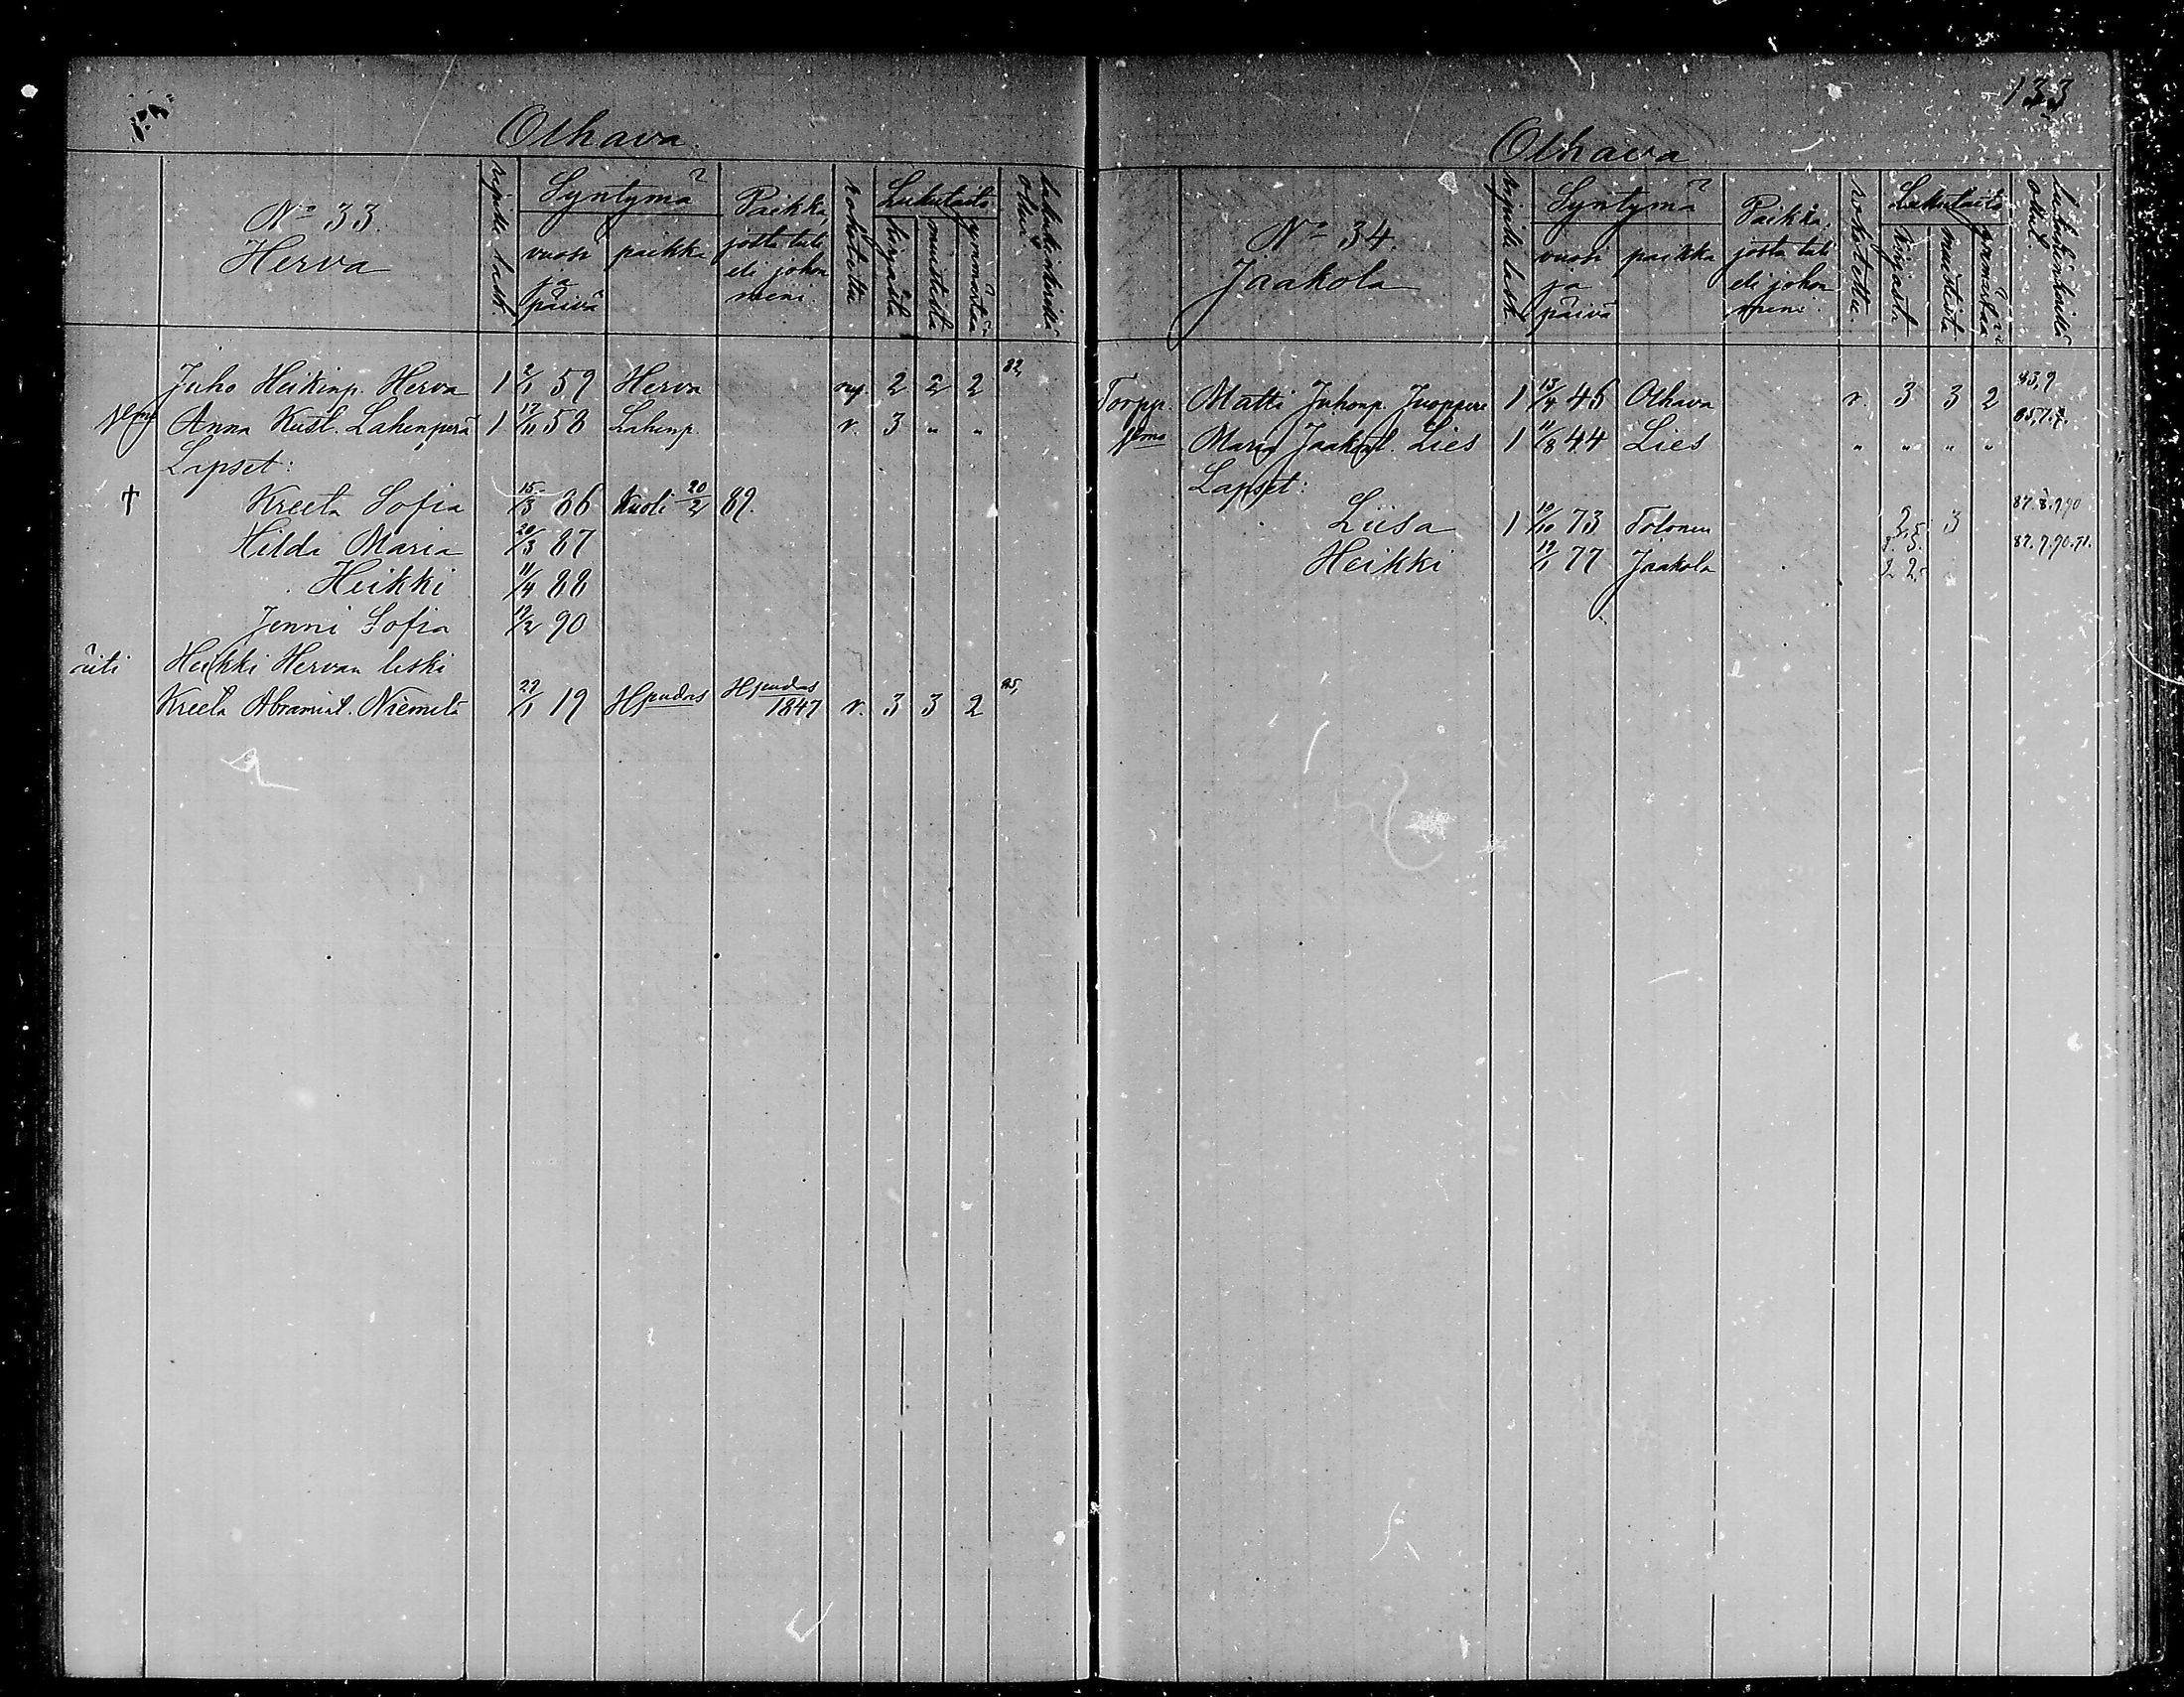 Olhava.
No 33.
Herva
ripille lask.
Syntymä
vuosi ja päivä
paikka
Paikka, josta tuli eli johon meni.
rokotettu
Lukutaito
kirjasta
muistista
ymmärtää
lukukinkerillä ollut.
Juho Heikinp. Herva 1 2/1 59 Herva 2 2 2 82,
Anna Kust. Lahenperä 1 17/11 58 Lahenp. r. 3 " "
Lapset:
† Kreeta Sofia 15/3 86 Kuoli 20/2 89.
Hilda Maria 20/3 87
Heikki 11/4 88
Jenni Sofia 12/2 90
äiti Heikki Hervan leski
Kreeta Abramint. Niemelä 22/1 19 Hpudas Hpudas 1847 r. 3 3 2 85,
133
Olhava
No 34.
Jaakola
ripille lask.
Syntymä
vuosi ja päivä
paikka
Paikka, josta tuli eli johon meni.
rokotettu.
Lukutaito
kirjasta
muistista
ymmärtää
lukukinkerillä ollut.
Torpp. Matti Juhonp. Juoppere 1 13/4 45 Olhava r. 3 3 2 83,9
Vmo Maria Jaakont. Lies 1 11/8 44 Lies " " " " 85,7.9.
Lapset:
Liisa 1 10/10 73 Tolonen 2 3 87.8.9.90
Heikki 19/1 77 Jaakola 2 2 87.9.90.91.